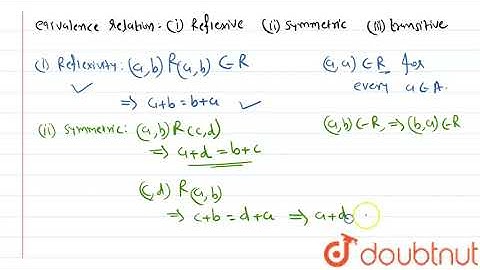 eqivalence relation: (i) Reflexive (ii) symmetric (iii) transitive
(i) Reflexivity: (a,b) R (a,b) ∈ R
⇒ a+b = b+a
(a,a) ∈ R for
every a ∈ A.
(ii) symmetric: (a,b) R (c,d)
⇒ a+d = b+c
(a,b) ∈ R, ⇒ (b,a) ∈ R
(c,d) R (a,b)
⇒ c+b = d+a ⇒ a+d
doubtnut